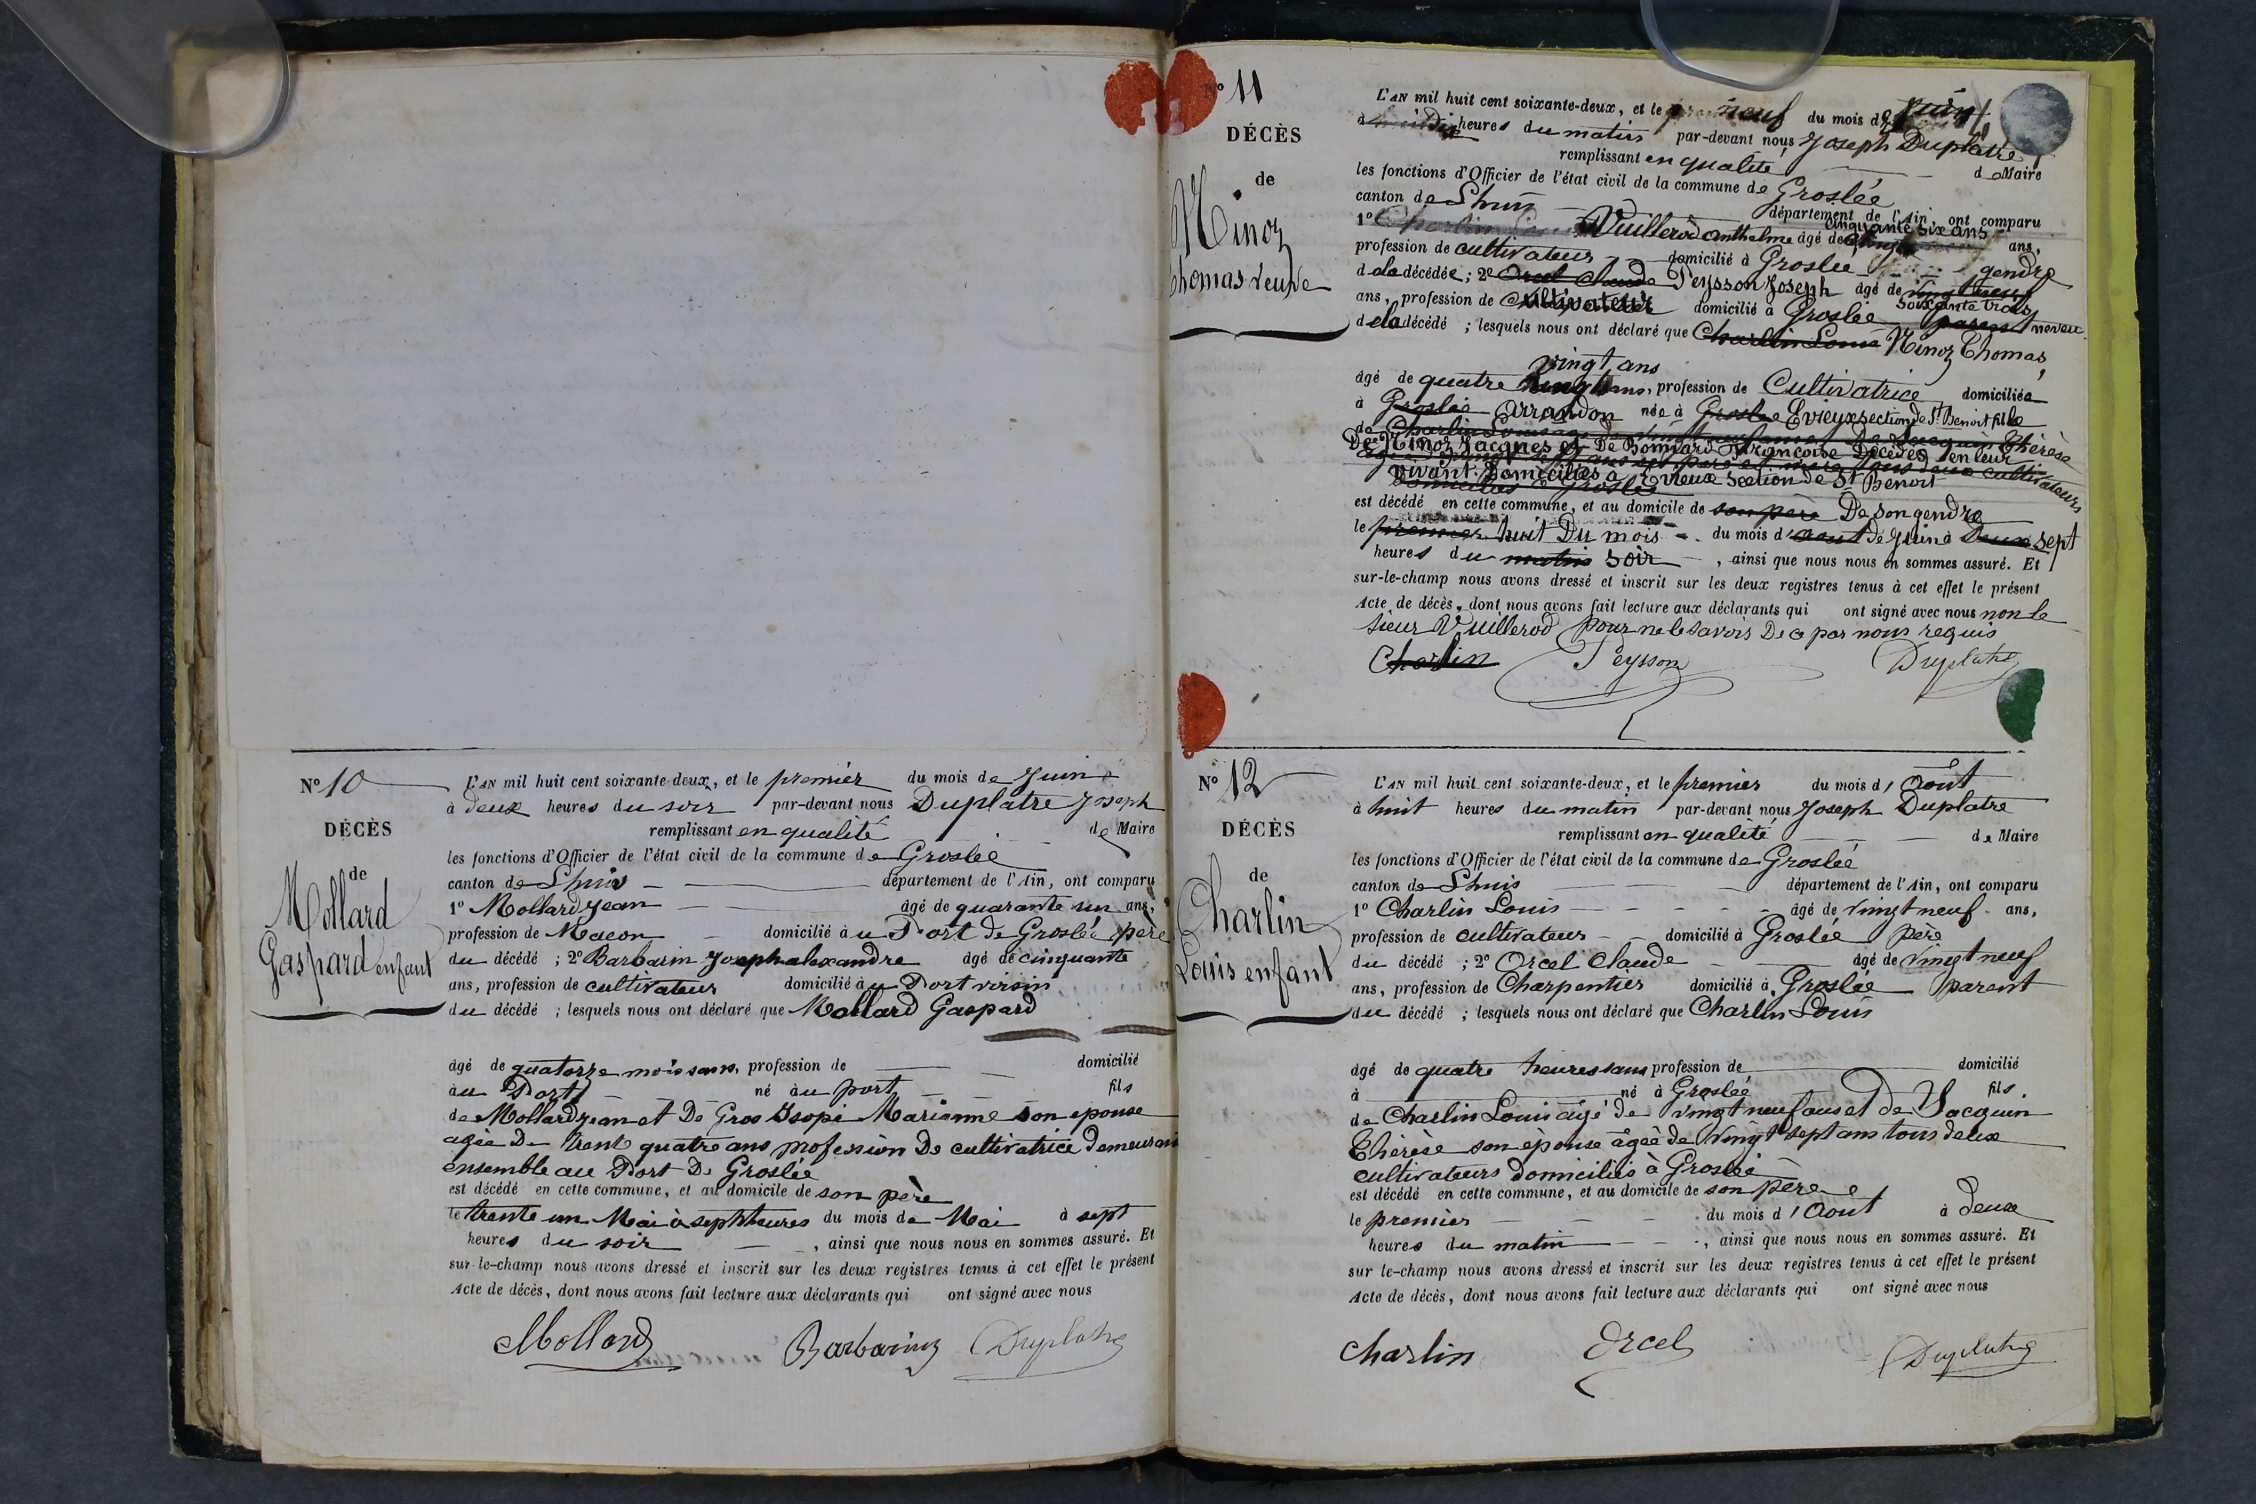 N° 10
DÉCÈS
de
Mollard
Gaspard enfant
L'AN mil huit cent soixante-deux, et le premier du mois de Juin
à deux heures du soir par-devant nous Duplatre Joseph
remplissant en qualité de Maire
les fonctions d'Officier de l'état civil de la commune de Groslée
canton de Lhuis département de l'Ain, ont comparu
1° Mollard Jean âgé de quarante un ans,
profession de Macon domicilié au Port de Groslée père
du décédé ; 2° Barbarin Joseph alexandre âgé de cinquante
ans, profession de cultivateur domicilié au Port voisin
du décédé ; lesquels nous ont déclaré que Mollard Gaspard
âgé de quatorze mois sans, profession de domicilié
au Port né au port fils
de Mollard Jean et De Gros Isopi Marianne son epouse
agée De trente quatre ans profession De cultivatrice demeurant
ensemble au Port De Groslée
est décédé en cette commune, et au domicile de son père
le trente un Mai à sept heures du mois de Mai à sept
heures du soir , ainsi que nous nous en sommes assuré. Et
sur-le-champ nous avons dressé et inscrit sur les deux registres tenus à cet effet le présent
Acte de décès, dont nous avons fait lecture aux déclarants qui ont signé avec nous
Mollard Barbarin Duplatre
N° 11
DÉCÈS
de
Ninoz
Thomas veuve
L'AN mil huit cent soixante-deux, et le neuf du mois de Juin
à dix heures du matin par-devant nous Joseph Duplatre
remplissant en qualité de Maire
les fonctions d'Officier de l'état civil de la commune de Groslée
canton de Lhuis département de l'Ain, ont comparu
1° Vuillerod anthelme âgé de cinquante six ans ans,
profession de cultivateur domicilié à Groslée gendre
de la décédée ; 2° Orcel Claude Peysson Joseph âgé de vingt neuf soixante trois
ans, profession de cultivateur domicilié à Groslée parent neveu
de la décédé ; lesquels nous ont déclaré que Charlin Louis Ninoz Thomas
vingt ans
âgé de quatre ans, profession de Cultivatrice domiciliée
à Groslée Arrandon née à Groslée Evieux section de St Benoit fille
de Charlin Louis agé de vingt neuf ans et De Jacquin Thérèse
De Ninoz Jacques et De Bonnard Françoise Décédés en leur
vivant Domiciliés à Evieux Section de St Benoit
domiciliés à Groslée
est décédé en cette commune, et au domicile de son père De son gendre
le premier huit Du mois du mois d'aout de Juin à Deux sept
heures du matin soir , ainsi que nous nous en sommes assuré. Et
sur-le-champ nous avons dressé et inscrit sur les deux registres tenus à cet effet le présent
Acte de décès, dont nous avons fait lecture aux déclarants qui ont signé avec nous non le
sieur Vuillerod pour ne le savoir De ce par nous requis
Charlin Peysson Duplatre
N° 12
DÉCÈS
de
Charlin
Louis enfant
L'AN mil huit cent soixante-deux, et le premier du mois d'Aout
à huit heures du matin par-devant nous Joseph Duplatre
remplissant en qualité de Maire
les fonctions d'Officier de l'état civil de la commune de Groslée
canton de Lhuis département de l'Ain, ont comparu
1° Charlin Louis âgé de vingt neuf ans,
profession de cultivateur domicilié à Groslée père
du décédé ; 2° Orcel Claude âgé de vingt neuf
ans, profession de Charpentier domicilié à Groslée parent
du décédé ; lesquels nous ont déclaré que Charlin Louis
âgé de quatre heures sans profession de domicilié
à né à Groslée fils
de Charlin Louis agé de vingt neuf ans et de Jacquin
Thérèse son épouse agée de vingt sept ans tous deux
cultivateurs domiciliés à Groslée
est décédé en cette commune, et au domicile de son père
le premier du mois d'Aout à deux
heures du matin , ainsi que nous nous en sommes assuré. Et
sur le-champ nous avons dressé et inscrit sur les deux registres tenus à cet effet le présent
Acte de décès, dont nous avons fait lecture aux déclarants qui ont signé avec nous
Charlin Orcel Duplatre